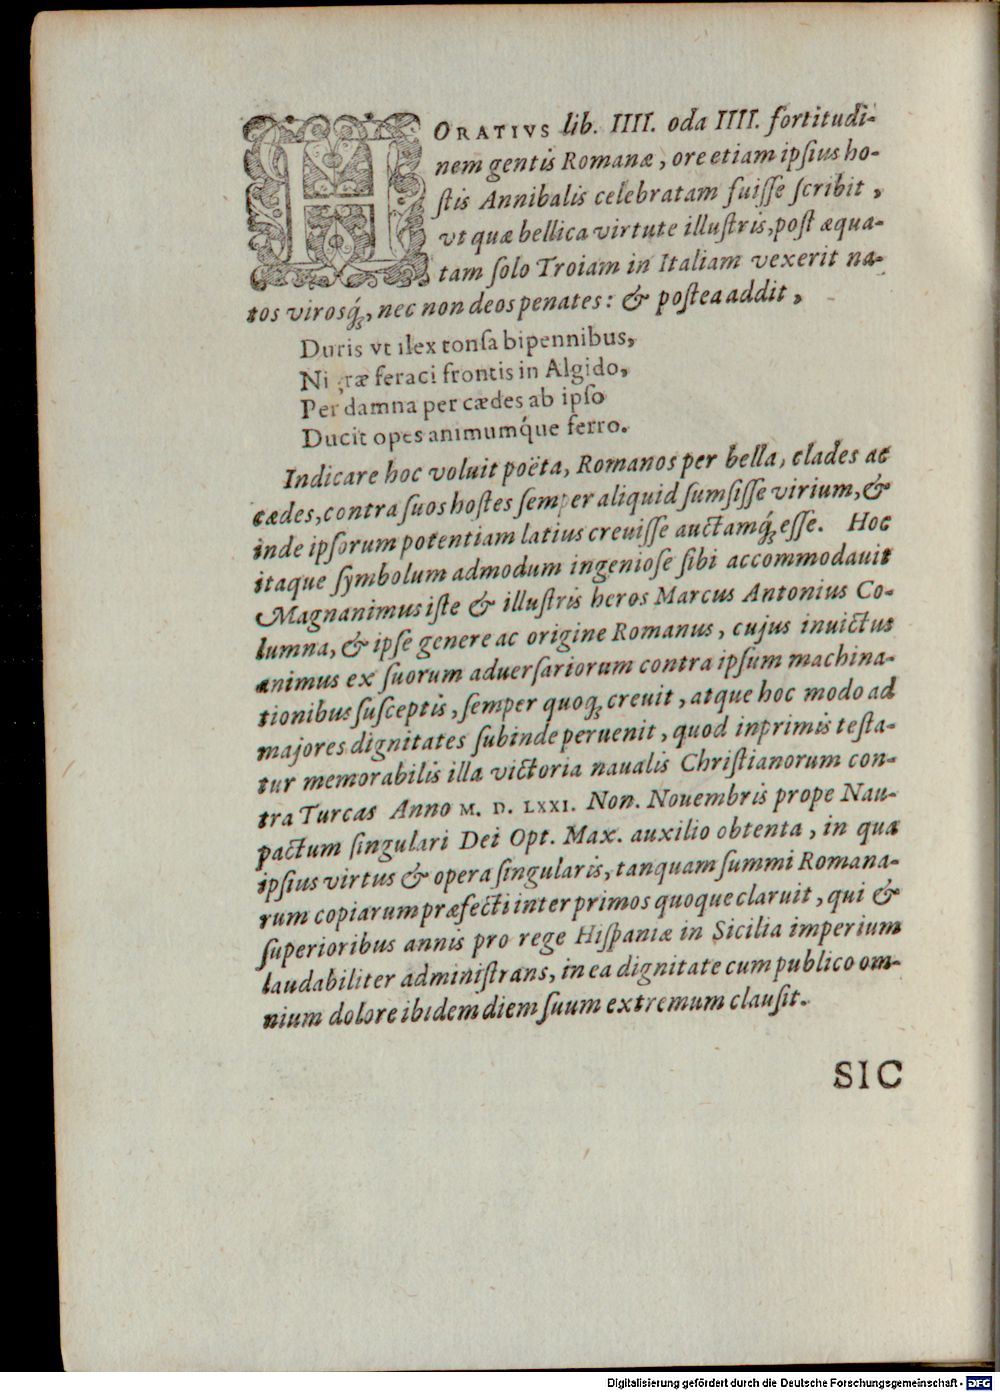 HORATIVS lib. IIII. oda IIII. fortitudi-
nem gentis Romanæ, ore etiam ipſius ho-
ſtis Annibalis celebratam fuiſſe ſcribit,
vt quæ bellica virtute illuſtris, poſt æqua-
tam ſolo Troiam in Italiam vexerit na-
tos virosq́;, nec non deos penates: & poſtea addit,
Duris vt ilex tonſa bipennibus,
Nigræ feraci frontis in Algido,
Per damna per cædes ab ipſo
Ducit opes animumq́ue ferro.
Indicare hoc voluit poëta, Romanos per bella, clades ac
cædes, contra ſuos hoſtes ſemper aliquid ſumſiſſe virium, &
inde ipſorum potentiam latius creuiſſe auctamq́; eſſe. Hoc
itaque ſymbolum admodum ingenioſe ſibi accommodauit
Magnanimus iſte & illuſtris heros Marcus Antonius Co-
lumna, & ipſe genere ac origine Romanus, cujus inuictus
animus ex ſuorum aduerſariorum contra ipſum machina-
tionibus ſuſceptis, ſemper quoq; creuit, atque hoc modo ad
majores dignitates ſubinde peruenit, quod inprimis teſta-
tur memorabilis illa victoria naualis Chriſtianorum con-
tra Turcas Anno M. D. LXXI. Non. Nouembris prope Nau-
pactum ſingulari Dei Opt. Max. auxilio obtenta, in qua
ipſius virtus & opera ſingularis, tanquam ſummi Romana-
rum copiarum præfecti inter primos quoque claruit, qui &
ſuperioribus annis pro rege Hiſpaniæ in Sicilia imperium
laudabiliter adminiſtrans, in ea dignitate cum publico om-
nium dolore ibidem diem ſuum extremum clauſit.
SIC
Digitalisierung gefördert durch die Deutsche Forschungsgemeinschaft - DFG